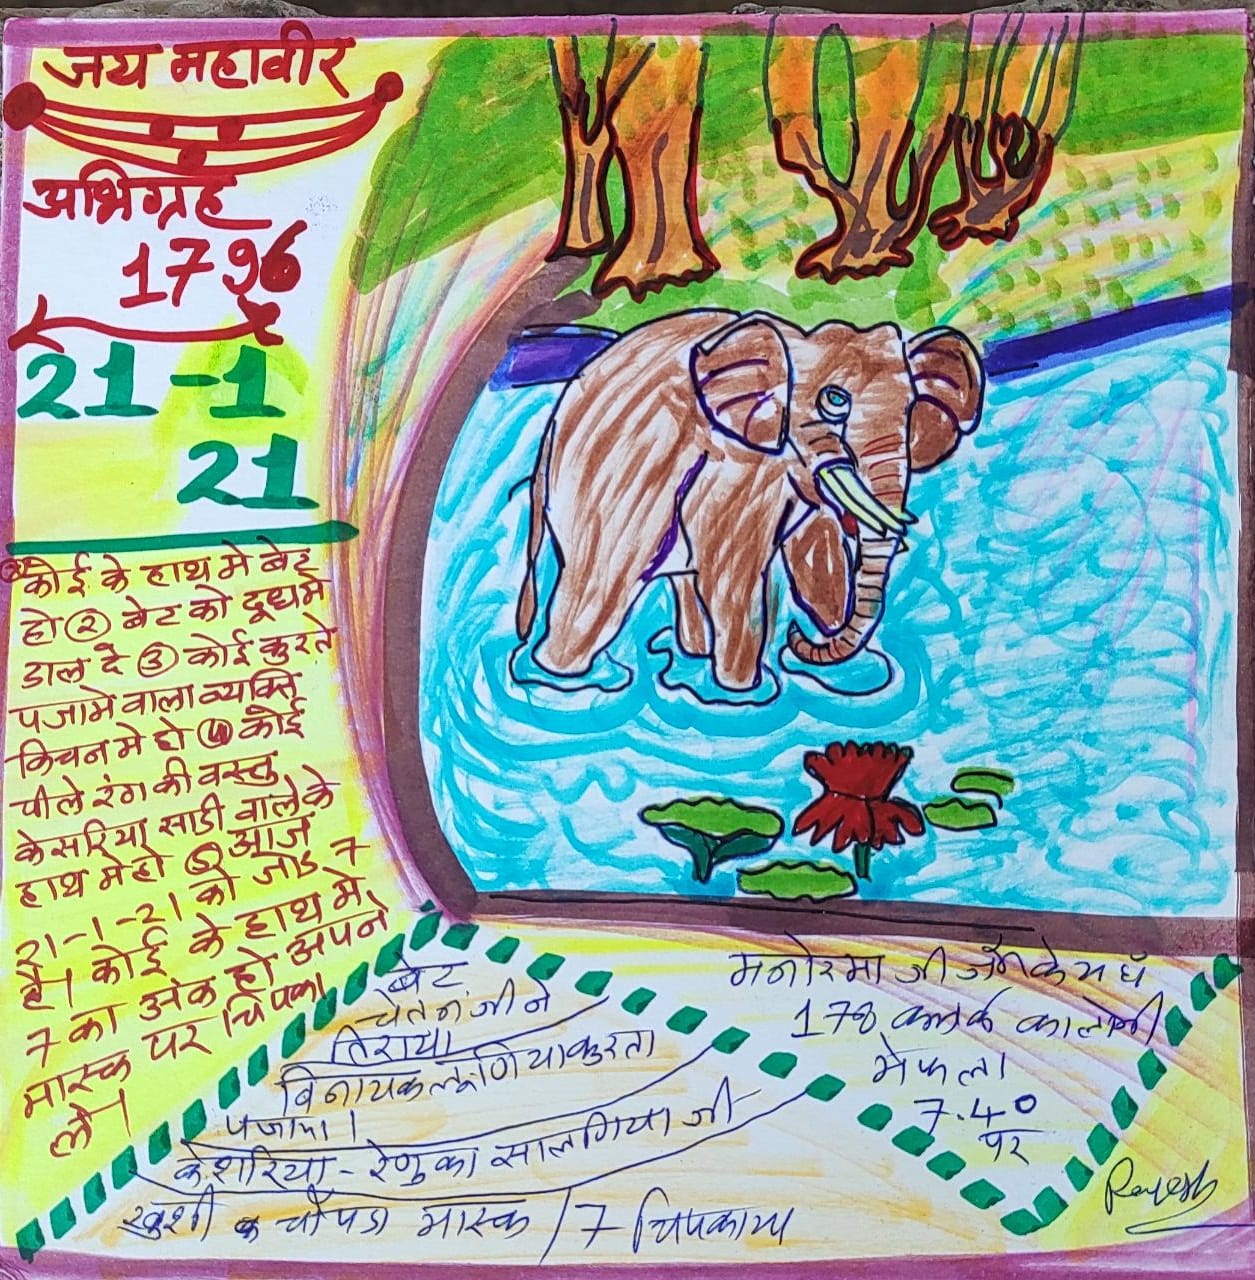 जय महावीर
अभिग्रह
1796
21-1
21
① कोई के हाथ मे बेट
हो ② बेट को दूध मे
डाल दे ③ कोई कुरते
पजामे वाला व्यक्ति
किचन मे हो ④ कोई
पीले रंग की वस्तु
केसरिया साडी वाले के
हाथ मे हो ⑤ आज
21-1-21 को जोड 7
है। कोई के हाथ मे
7 का अंक हो अपने
मास्क पर चिपका
ले।
बेट
चेतन जी ने
तिराया
विनायक लूणिया कुरता
पजामा।
केशरिया - रेणुका सालगिया जी
खुशी क चौपडा मास्क / 7 चिपकाया
मनोरमा जी जैन के यहाँ
178 क्लर्क कालोनी
मे फला
7.40
पर
Rajesh